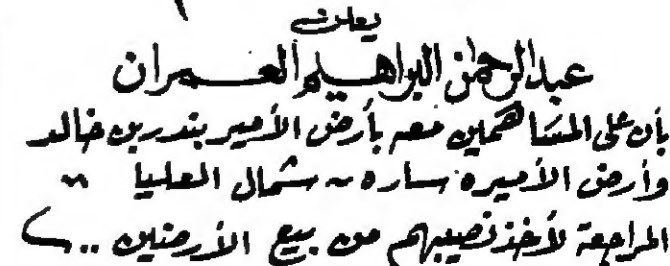 يعلن
عبدالرحمن البراهيم العمران
بأن على المساهمين معه بأرض الأمير بندر بن خالد
وأرض الأميره ساره ~ شمال العليا "
المراجعة لأخذ نصيبهم من بيع الأرضين ..